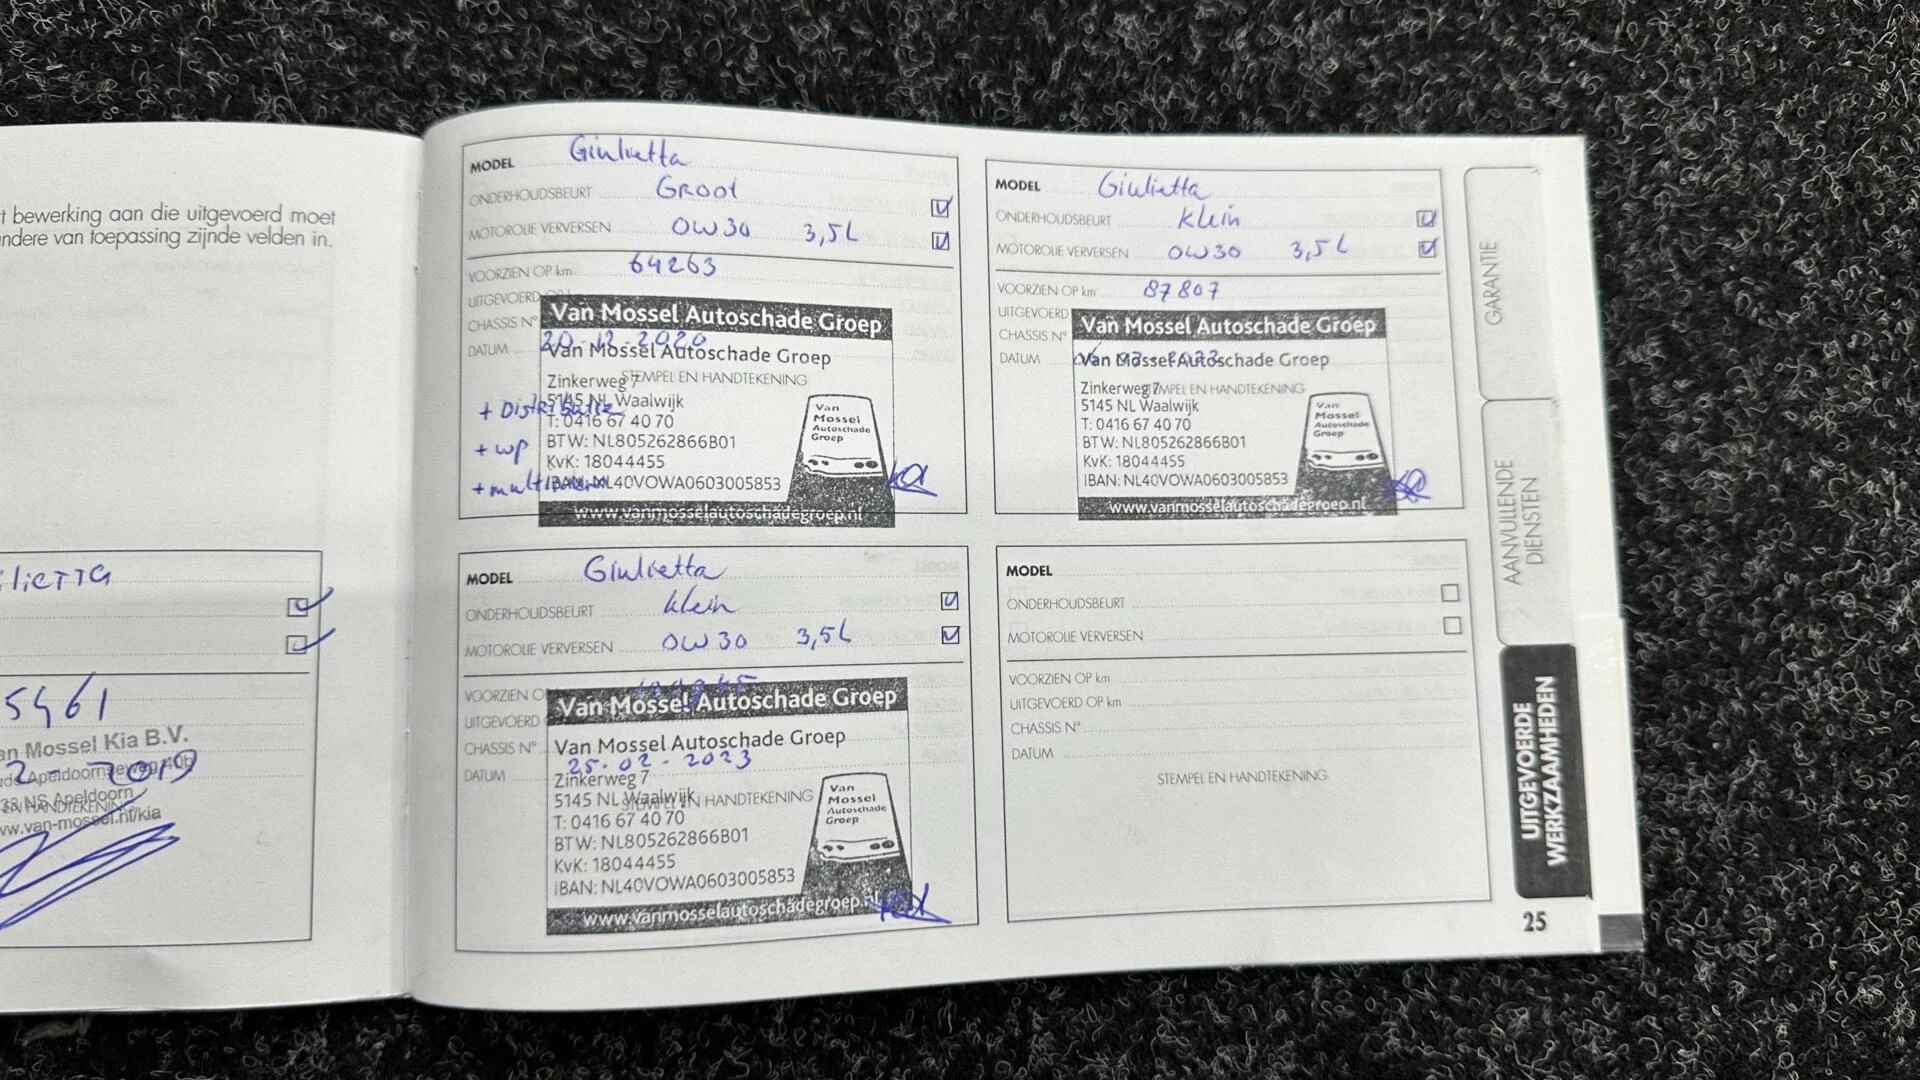 t bewerking aan die uitgevoerd moet
ndere van toepassing zijnde velden in.
LIETTA
5461
an Mossel Kia B.V.
2 2019
Apeldoornseweg 40b
NS Apeldoorn
EN HANDTEKENING
ww.van-mossel.nl/kia
MODEL Giulietta
ONDERHOUDSBEURT Groot
MOTOROLIE VERVERSEN 0W30 3,5L
VOORZIEN OP km 64263
UITGEVOERD
CHASSIS N°
Van Mossel Autoschade Groep
DATUM 20-12-2020
Van Mossel Autoschade Groep
STEMPEL EN HANDTEKENING
Zinkerweg 7
5145 NL Waalwijk
+ Distributie
T: 0416 67 40 70
BTW: NL805262866B01
+ wp
KvK: 18044455
IBAN: NL40VOWA0603005853
Van Mossel Autoschade Groep
www.vanmosselautoschadegroep.nl
MODEL Giulietta
ONDERHOUDSBEURT Klein
MOTOROLIE VERVERSEN 0W30 3,5L
VOORZIEN OP km 87807
UITGEVOERD
CHASSIS N°
Van Mossel Autoschade Groep
DATUM
Van Mossel Autoschade Groep
STEMPEL EN HANDTEKENING
Zinkerweg 7
5145 NL Waalwijk
T: 0416 67 40 70
BTW: NL805262866B01
KvK: 18044455
IBAN: NL40VOWA0603005853
Van Mossel Autoschade Groep
www.vanmosselautoschadegroep.nl
MODEL Giulietta
ONDERHOUDSBEURT Klein
MOTOROLIE VERVERSEN 0W30 3,5L
VOORZIEN O
UITGEVOERD
Van Mossel Autoschade Groep
CHASSIS N°
Van Mossel Autoschade Groep
DATUM 25-02-2023
Zinkerweg 7
5145 NL Waalwijk
EN HANDTEKENING
T: 0416 67 40 70
BTW: NL805262866B01
KvK: 18044455
IBAN: NL40VOWA0603005853
Van Mossel Autoschade Groep
www.vanmosselautoschadegroep.nl
MODEL
ONDERHOUDSBEURT
MOTOROLIE VERVERSEN
VOORZIEN OP km
UITGEVOERD OP km
CHASSIS N°
DATUM
STEMPEL EN HANDTEKENING
GARANTIE
AANVULLENDE
DIENSTEN
UITGEVOERDE
WERKZAAMHEDEN
25